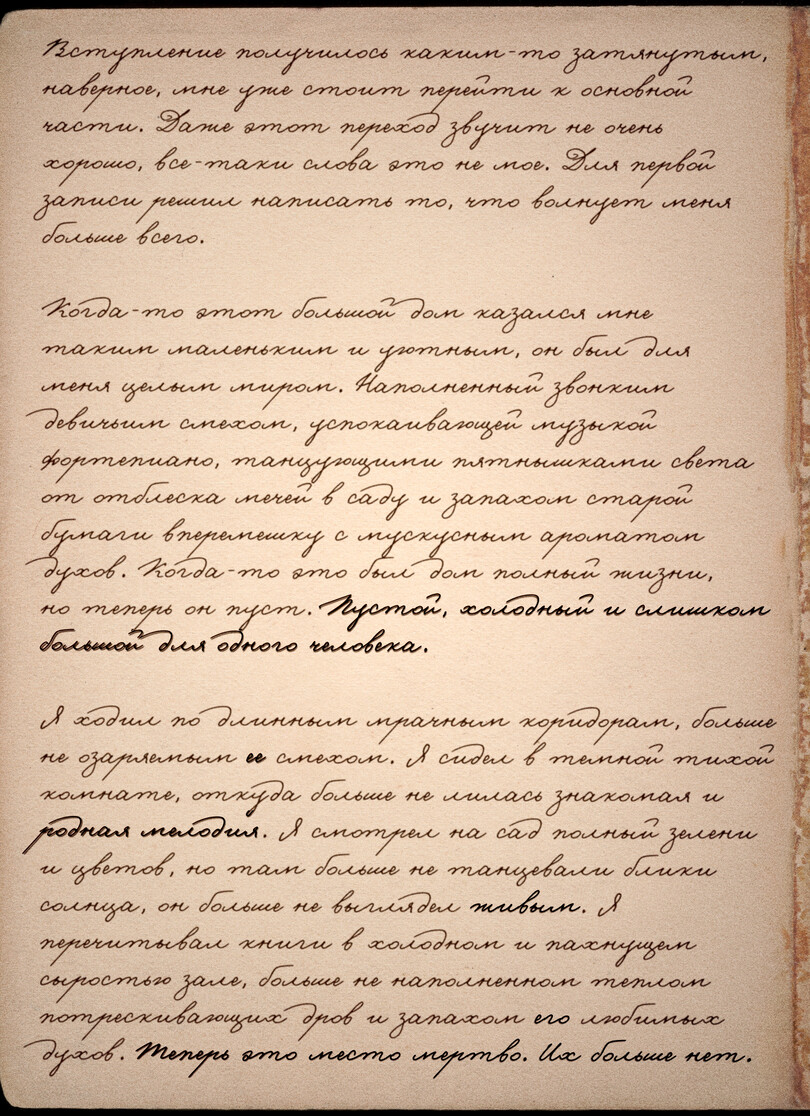 Вступление получилось каким-то затянутым,
наверное, мне уже стоит перейти к основной
части. Даже этот переход звучит не очень
хорошо, все-таки слова это не мое. Для первой
записи решил написать то, что волнует меня
больше всего.
Когда-то этот большой дом казался мне
таким маленьким и уютным, он был для
меня целым миром. Наполненный звонким
девичьим смехом, успокаивающей музыкой
фортепиано, танцующими пятнышками света
от отблеска мечей в саду и запахом старой
бумаги вперемешку с мускусным ароматом
духов. Когда-то это был дом полный жизни,
но теперь он пуст. Пустой, холодный и слишком
большой для одного человека.
Я ходил по длинным мрачным коридорам, больше
не озаряемым ее смехом. Я сидел в темной тихой
комнате, откуда больше не лилась знакомая и
родная мелодия. Я смотрел на сад полный зелени
и цветов, но там больше не танцевали блики
солнца, он больше не выглядел живым. Я
перечитывал книги в холодном и пахнущем
сыростью зале, больше не наполненном теплом
потрескивающих дров и запахом его любимых
духов. Теперь это место мертво. Их больше нет.